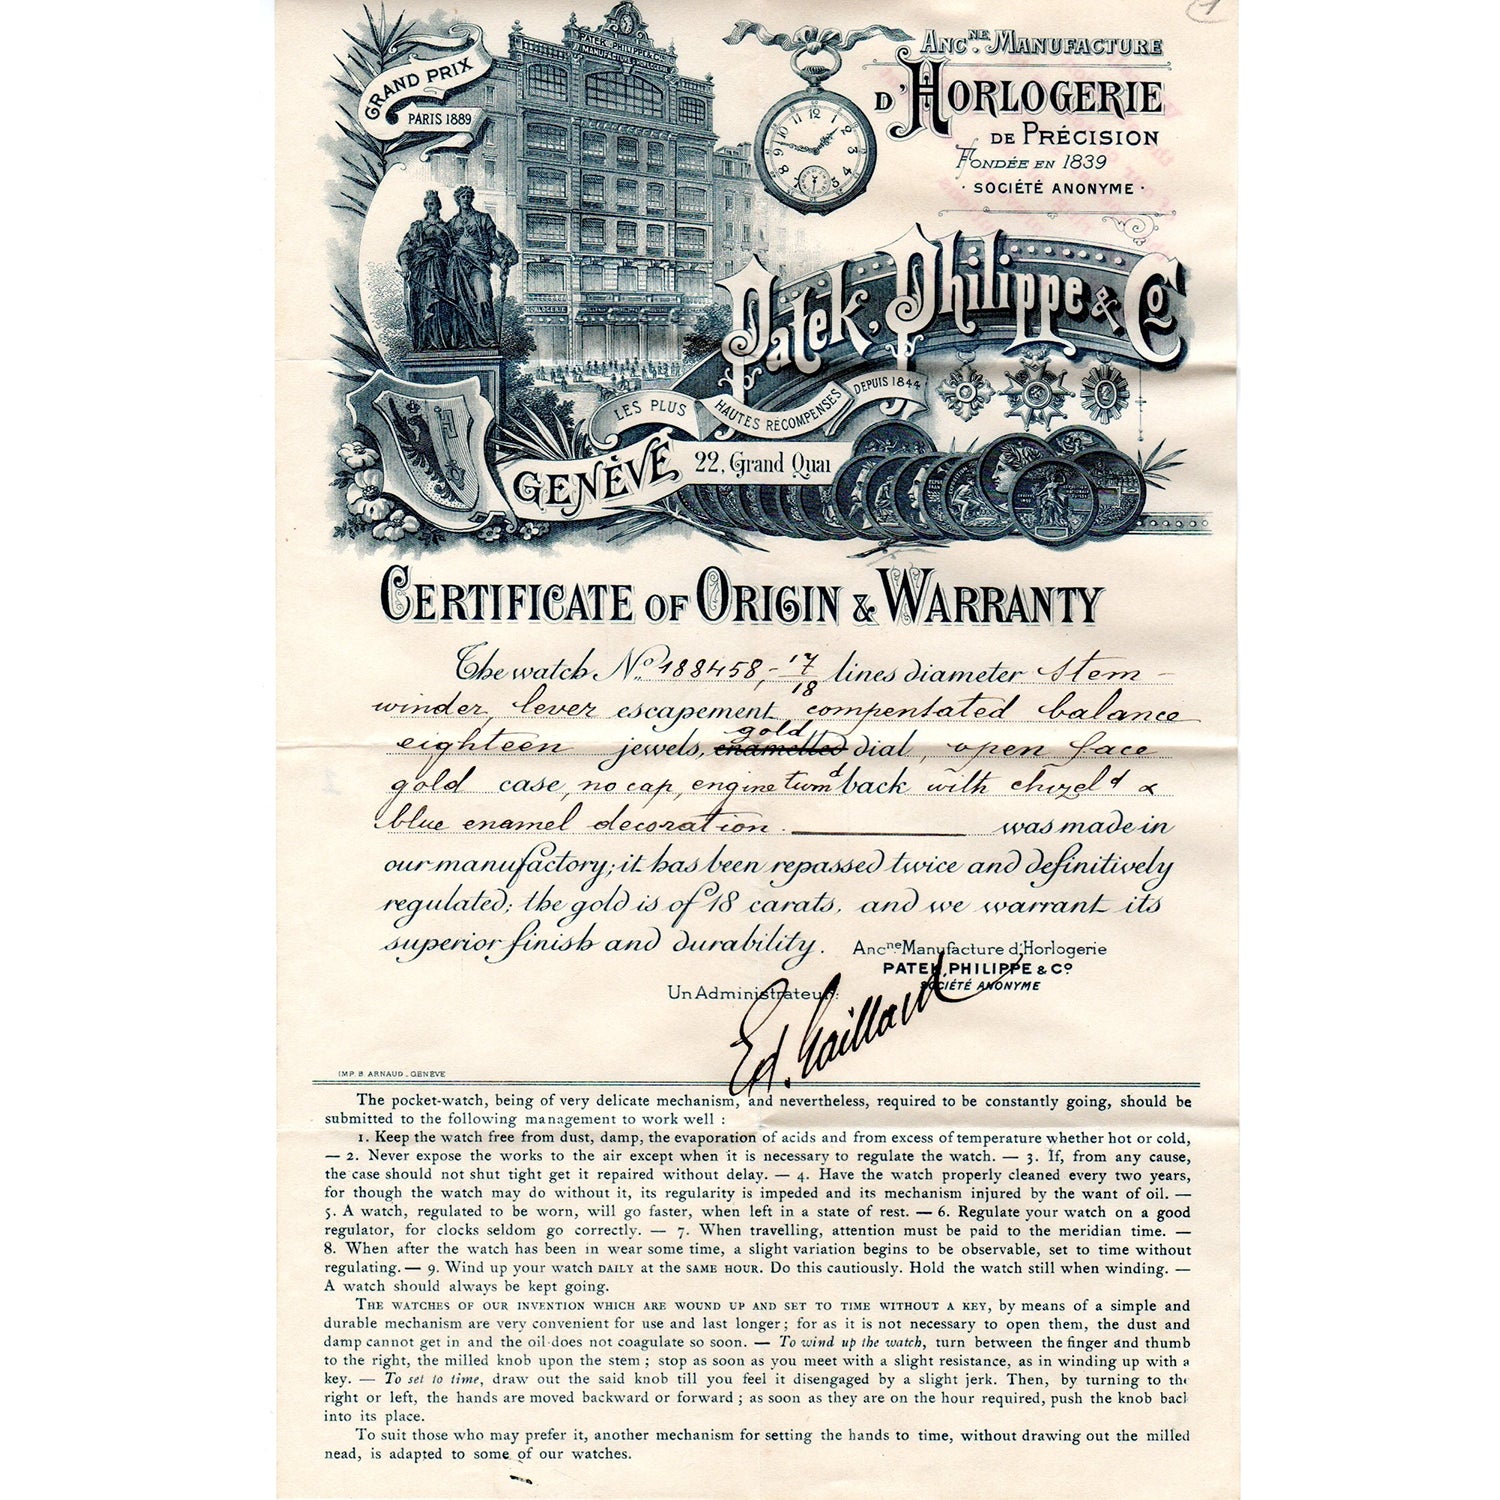 GRAND PRIX
PARIS 1889
PATEK, PHILIPPE & CO
MANUFACTURE D'HORLOGERIE
HORLOGERIE
ANC.NE MANUFACTURE
D'HORLOGERIE
DE PRÉCISION
FONDÉE EN 1839
· SOCIÉTÉ ANONYME ·
Patek, Philippe & Co
LES PLUS HAUTES RÉCOMPENSES DEPUIS 1844
GENÈVE 22, Grand Quai
CERTIFICATE OF ORIGIN & WARRANTY
The watch No 188458,- 17/18 lines diameter stem-
winder, lever escapement, compensated balance
eighteen jewels, enamelled gold dial, open face
gold case, no cap, engine turnd back with chizeld &
blue enamel decoration. was made in
our manufactory; it has been repassed twice and definitively
regulated; the gold is of 18 carats, and we warrant its
superior finish and durability.
Ancne Manufacture d'Horlogerie
PATEK, PHILIPPE & Co
SOCIÉTÉ ANONYME
Un Administrateur:
Ed. Gaillard
IMP. B. ARNAUD_GENÈVE
The pocket-watch, being of very delicate mechanism, and nevertheless, required to be constantly going, should be
submitted to the following management to work well :
1. Keep the watch free from dust, damp, the evaporation of acids and from excess of temperature whether hot or cold,
— 2. Never expose the works to the air except when it is necessary to regulate the watch. — 3. If, from any cause,
the case should not shut tight get it repaired without delay. — 4. Have the watch properly cleaned every two years,
for though the watch may do without it, its regularity is impeded and its mechanism injured by the want of oil. —
5. A watch, regulated to be worn, will go faster, when left in a state of rest. — 6. Regulate your watch on a good
regulator, for clocks seldom go correctly. — 7. When travelling, attention must be paid to the meridian time. —
8. When after the watch has been in wear some time, a slight variation begins to be observable, set to time without
regulating. — 9. Wind up your watch DAILY at the SAME HOUR. Do this cautiously. Hold the watch still when winding. —
A watch should always be kept going.
THE WATCHES OF OUR INVENTION WHICH ARE WOUND UP AND SET TO TIME WITHOUT A KEY, by means of a simple and
durable mechanism are very convenient for use and last longer; for as it is not necessary to open them, the dust and
damp cannot get in and the oil does not coagulate so soon. — To wind up the watch, turn between the finger and thumb
to the right, the milled knob upon the stem; stop as soon as you meet with a slight resistance, as in winding up with a
key. — To set to time, draw out the said knob till you feel it disengaged by a slight jerk. Then, by turning to the
right or left, the hands are moved backward or forward; as soon as they are on the hour required, push the knob back
into its place.
To suit those who may prefer it, another mechanism for setting the hands to time, without drawing out the milled
nead, is adapted to some of our watches.